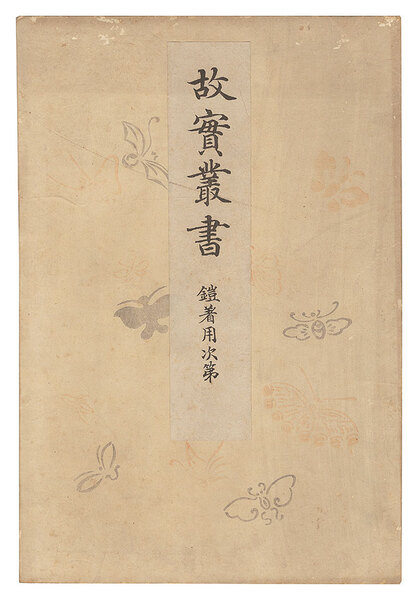 故實叢書
鎧着用次第